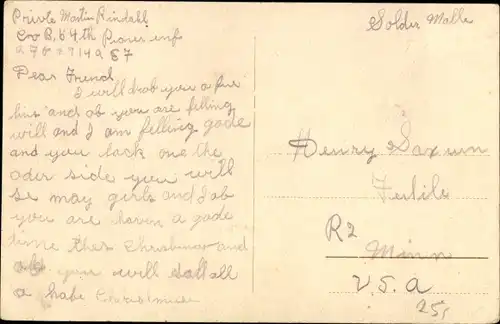 Privte Martin Rindahl
Co B. 64th Pioner inf
Dear Friend
I will drob you a few
lins and ob you are filling
will and I am felling gode
and you lack one the
oder side you will
se may girls and I ob
you are haven a gode
time thes Christmas and
ob you will all
a habe Christmise
Solder Malle
Henry Saxum
Fertile
R2
Minn
U.S.A
25